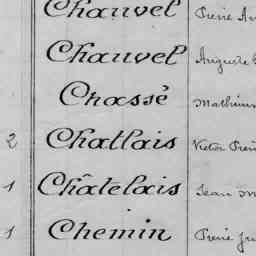 Chauvel Pierre
Chauvel Auguste
Chassé Mathurin
2 Chatlais Victor
1 Châtelais Jean M
1 Chemin Pierre